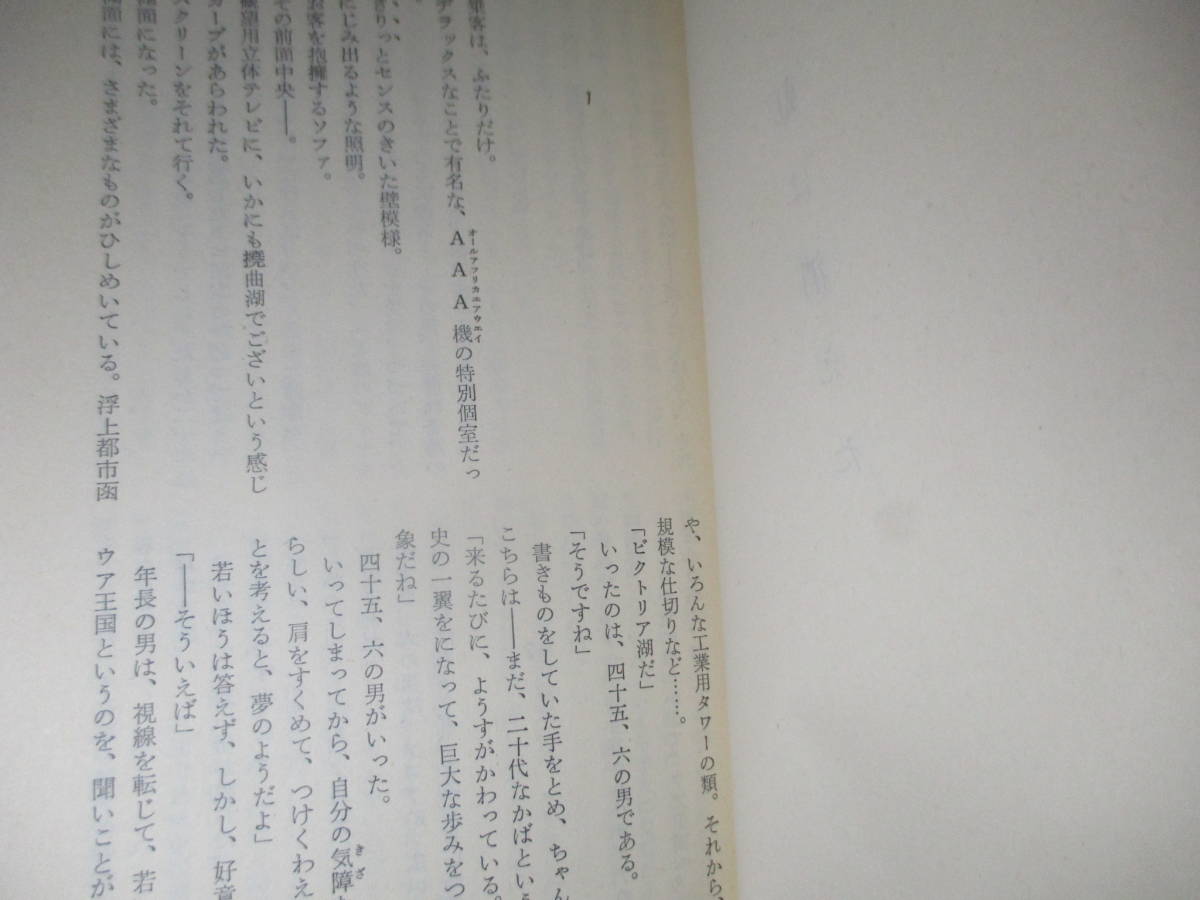 1
乗客は、ふたりだけ。
デラックスなことで有名な、AAA機の特別個室だっ
オールアフリカエアウエイ
きりっとセンスのきいた壁模様。
にじみ出るような照明。
お客を抱擁するソファ。
その前面中央――。
展望用立体テレビに、いかにも撓曲湖でございという感じ
カーブがあらわれた。
スクリーンをそれて行く。
湖面になった。
湖面には、さまざまなものがひしめいている。浮上都市函
や、いろんな工業用タワーの類。それから、
規模な仕切りなど……。
「ビクトリア湖だ」
いったのは、四十五、六の男である。
「そうですね」
書きものをしていた手をとめ、ちゃん
こちらは――まだ、二十代なかばという
「来るたびに、ようすがかわっている。
史の一翼をになって、巨大な歩みをつ
象だね」
四十五、六の男がいった。
いってしまってから、自分の気障
きざ
らしい、肩をすくめて、つけくわえ
とを考えると、夢のようだよ」
若いほうは答えず、しかし、好意
「――そういえば」
年長の男は、視線を転じて、若
ウア王国というのを、聞いことが